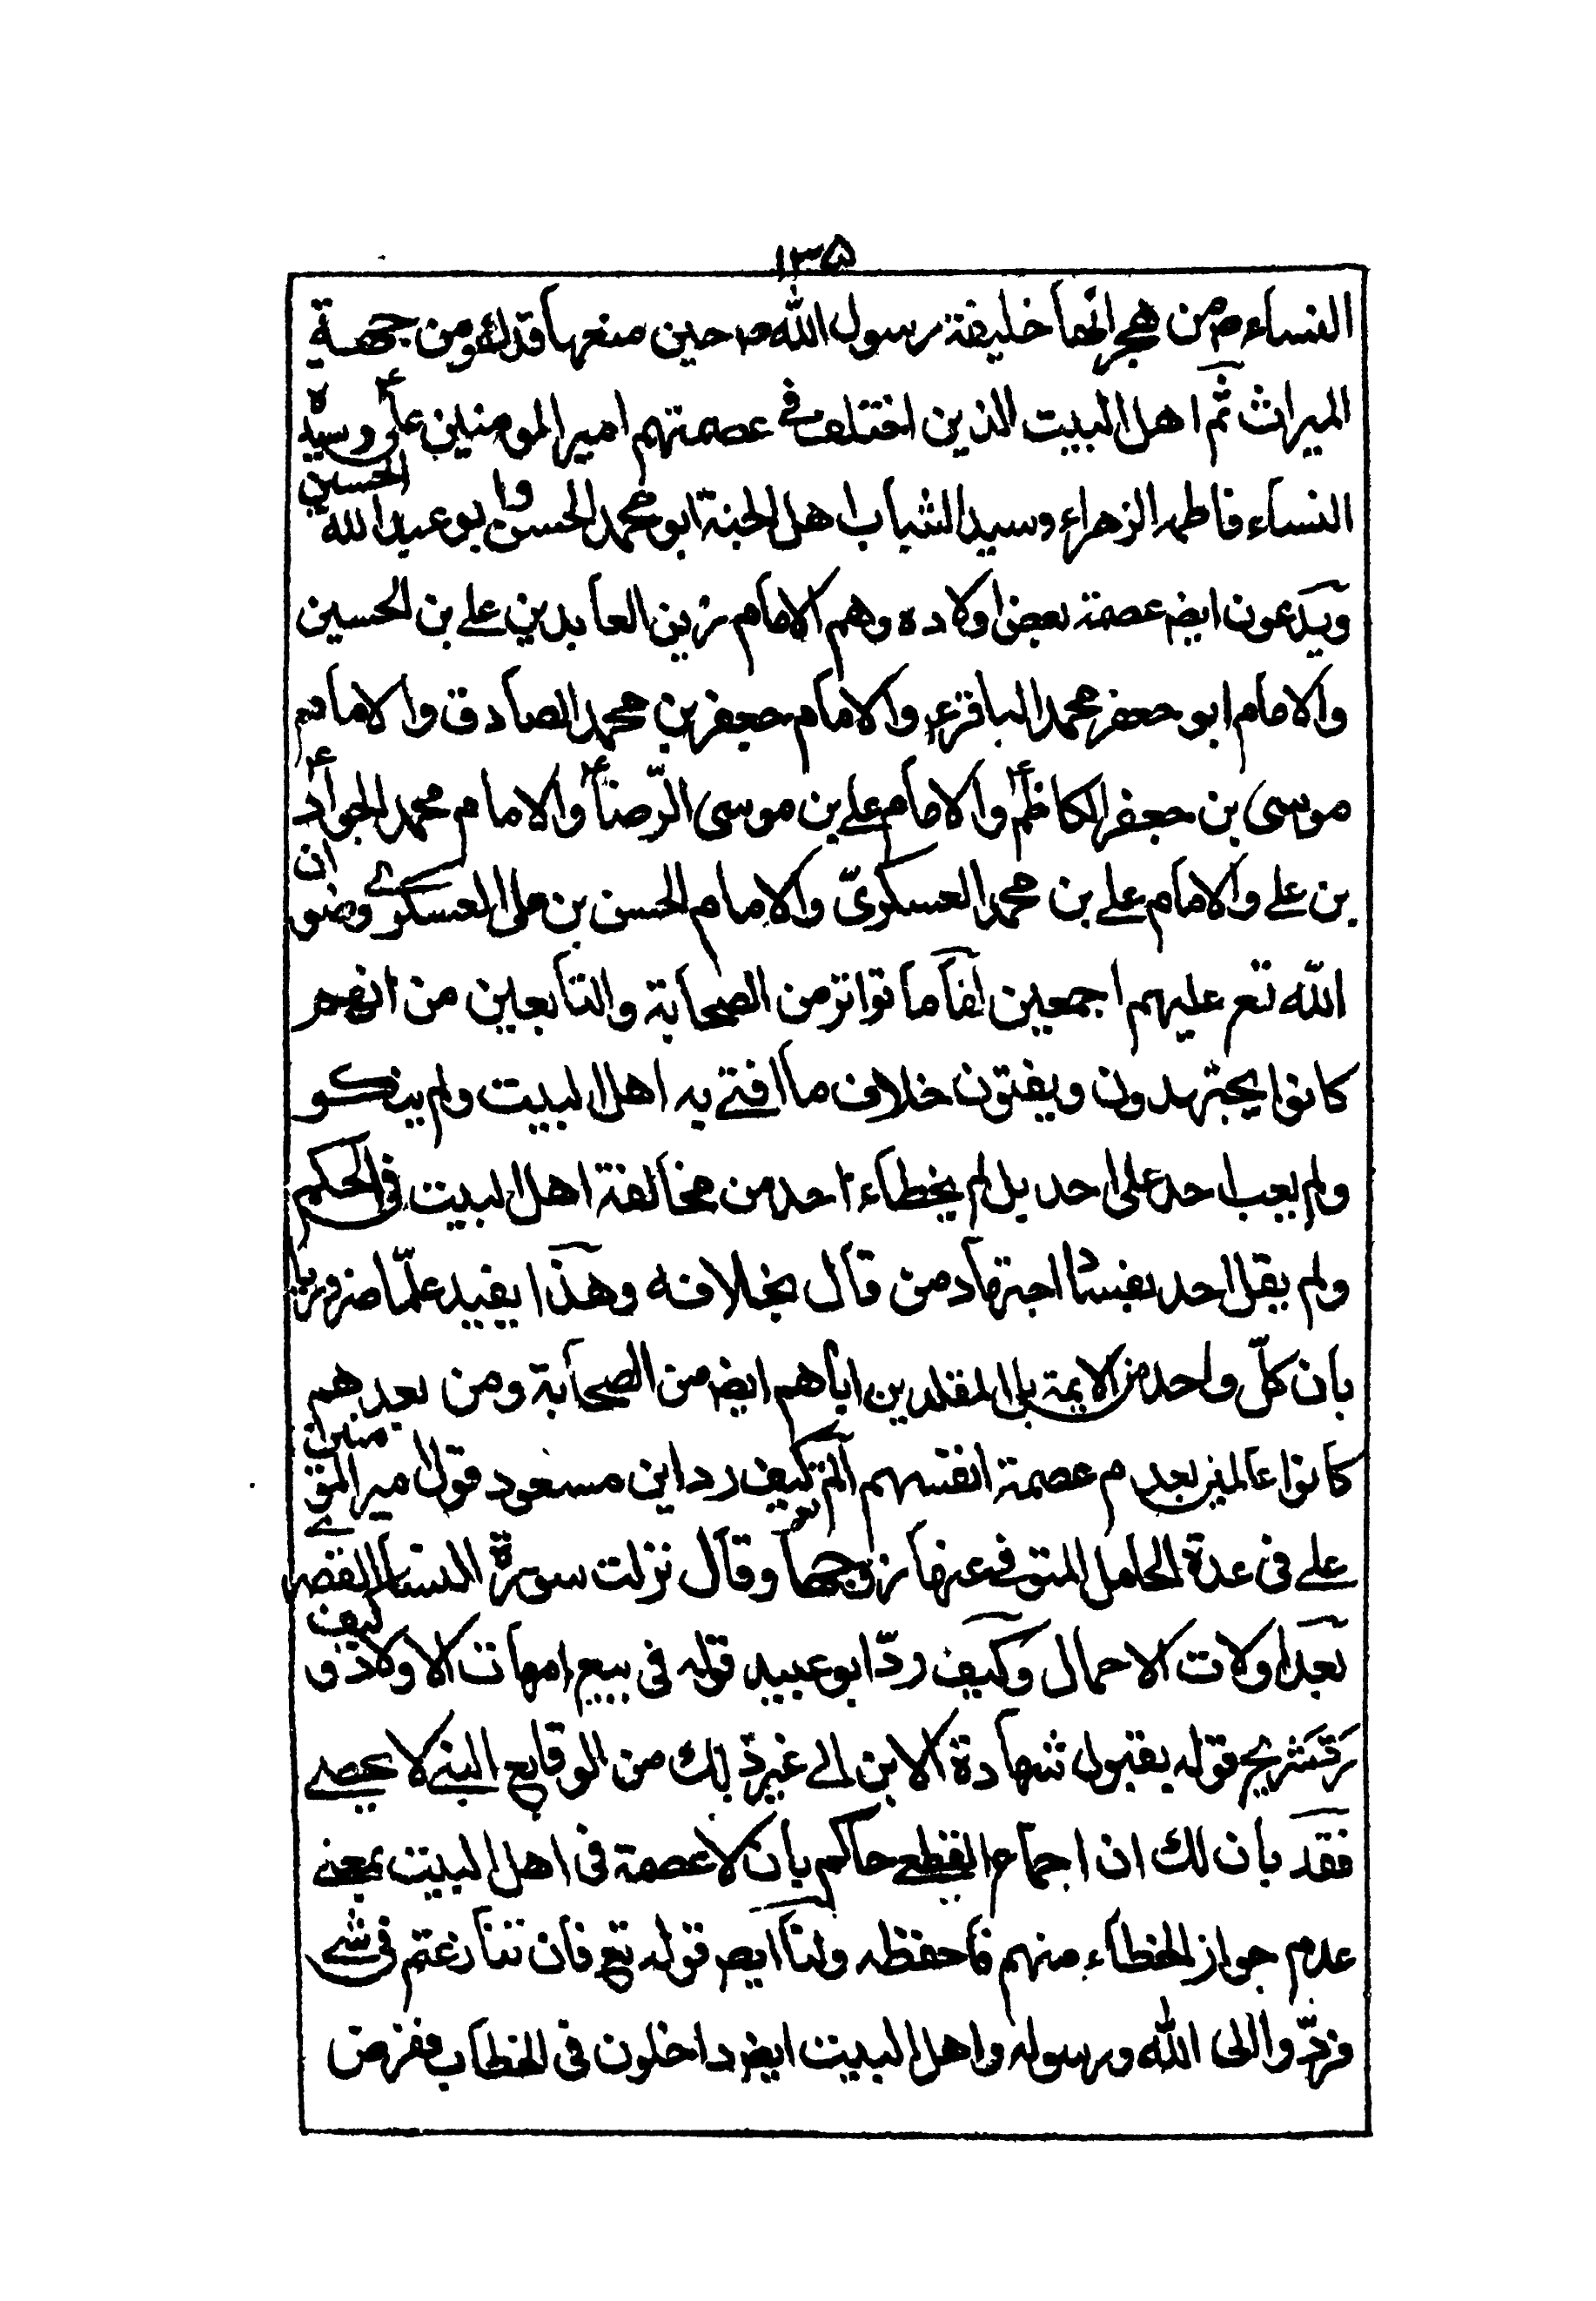 ۱۳۵
النساء ص من هجرانها خليفة رسول الله ص حين منعها فدك من جهة
الميراث ثم اهل البيت الذين اختلف في عصمتهم امير المومنين علي ع وسيدة
النساء فاطمه الزهراء وسيدا الشباب اهل الجنة ابو محمد الحسن وابو عبد الله الحسين
ويدعون ايضا عصمة بعض اولاده وهم الامام زين العابدين علي بن الحسين
والامام ابو جعفر محمد الباقر ع والامام جعفر بن محمد الصادق والامام
موسى بن جعفر الكاظم ع والامام علي بن موسى الرّضا ع والامام محمد الجواد ع
بن علي والامام علي بن محمد العسكريّ والامام الحسن بن على العسكري رضوان
الله تع عليهم اجمعين لنا ما تواتر من الصحابة والتابعين من انهم
كانوا يجتهدون ويفتون خلاف ما افتى به اهل البيت ولم ينكر
ولم يعب احد على احد بل لم يخطاء احد من مخالفة اهل البيت في الحكم
ولم يقل احد بفساد اجتهاد من قال بخلافه وهذا يفيد علمّا ضروريا
بان كلّ واحد من الايمة بل المقلدين اياهم ايضا من الصحابة ومن بعدهم
كانوا عالمين بعدم عصمة انفسهم الم تر كيف رد ابن مسعود قول امير المومنين
علي في عدة الحامل المتوفى عنها زوجها وقال نزلت سورة النساء القصرى
بعد اولات الاحمال وكيف ردّ ابو عبيد قوله في بيع امهات الاولاد وكيف
رد شريح قوله بقبول شهادة الابن الى غير ذلك من الوقايع التي لا يحصى
فقد بان لك ان اجماع القطعي حاكم بان لا عصمة في اهل البيت بمعنى
عدم جواز الخطاء منهم فاحفظه ولنا ايض قوله تع فان تنازعتم في شي
فردّوا الى الله ورسوله واهل البيت ايض داخلون في الخطاب ففرض